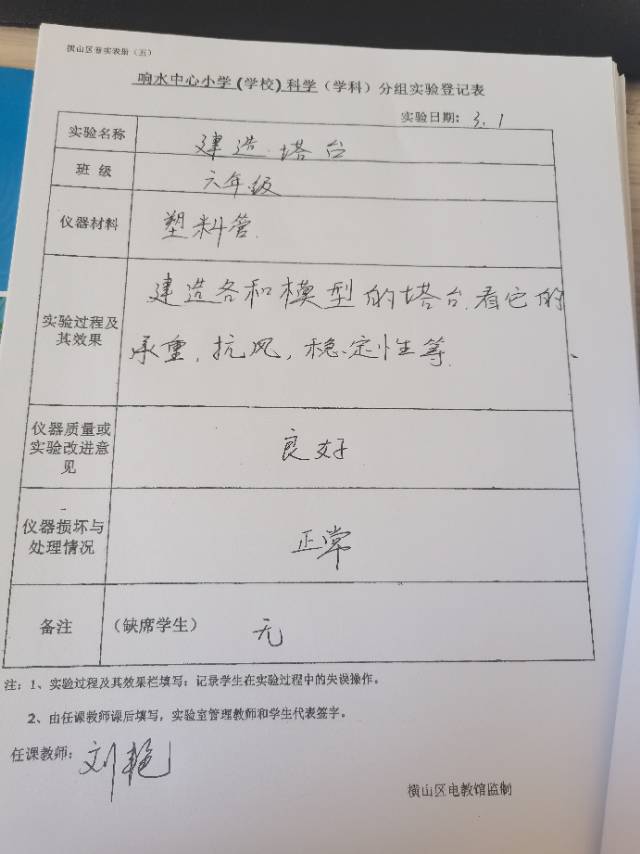 横山区普实表册（五）
响水中心小学(学校)科学（学科）分组实验登记表
实验日期：3.1
实验名称 建造塔台
班 级 六年级
仪器材料 塑料管.
实验过程及其效果 建造各和模型的塔台.看它的
承重,抗风,稳定性等.
仪器质量或
实验改进意
见
良好
仪器损坏与
处理情况
正常
备注 （缺席学生） 无
注：1、实验过程及其效果栏填写：记录学生在实验过程中的失误操作。
2、由任课教师课后填写，实验室管理教师和学生代表签字。
任课教师：刘艳
横山区电教馆监制